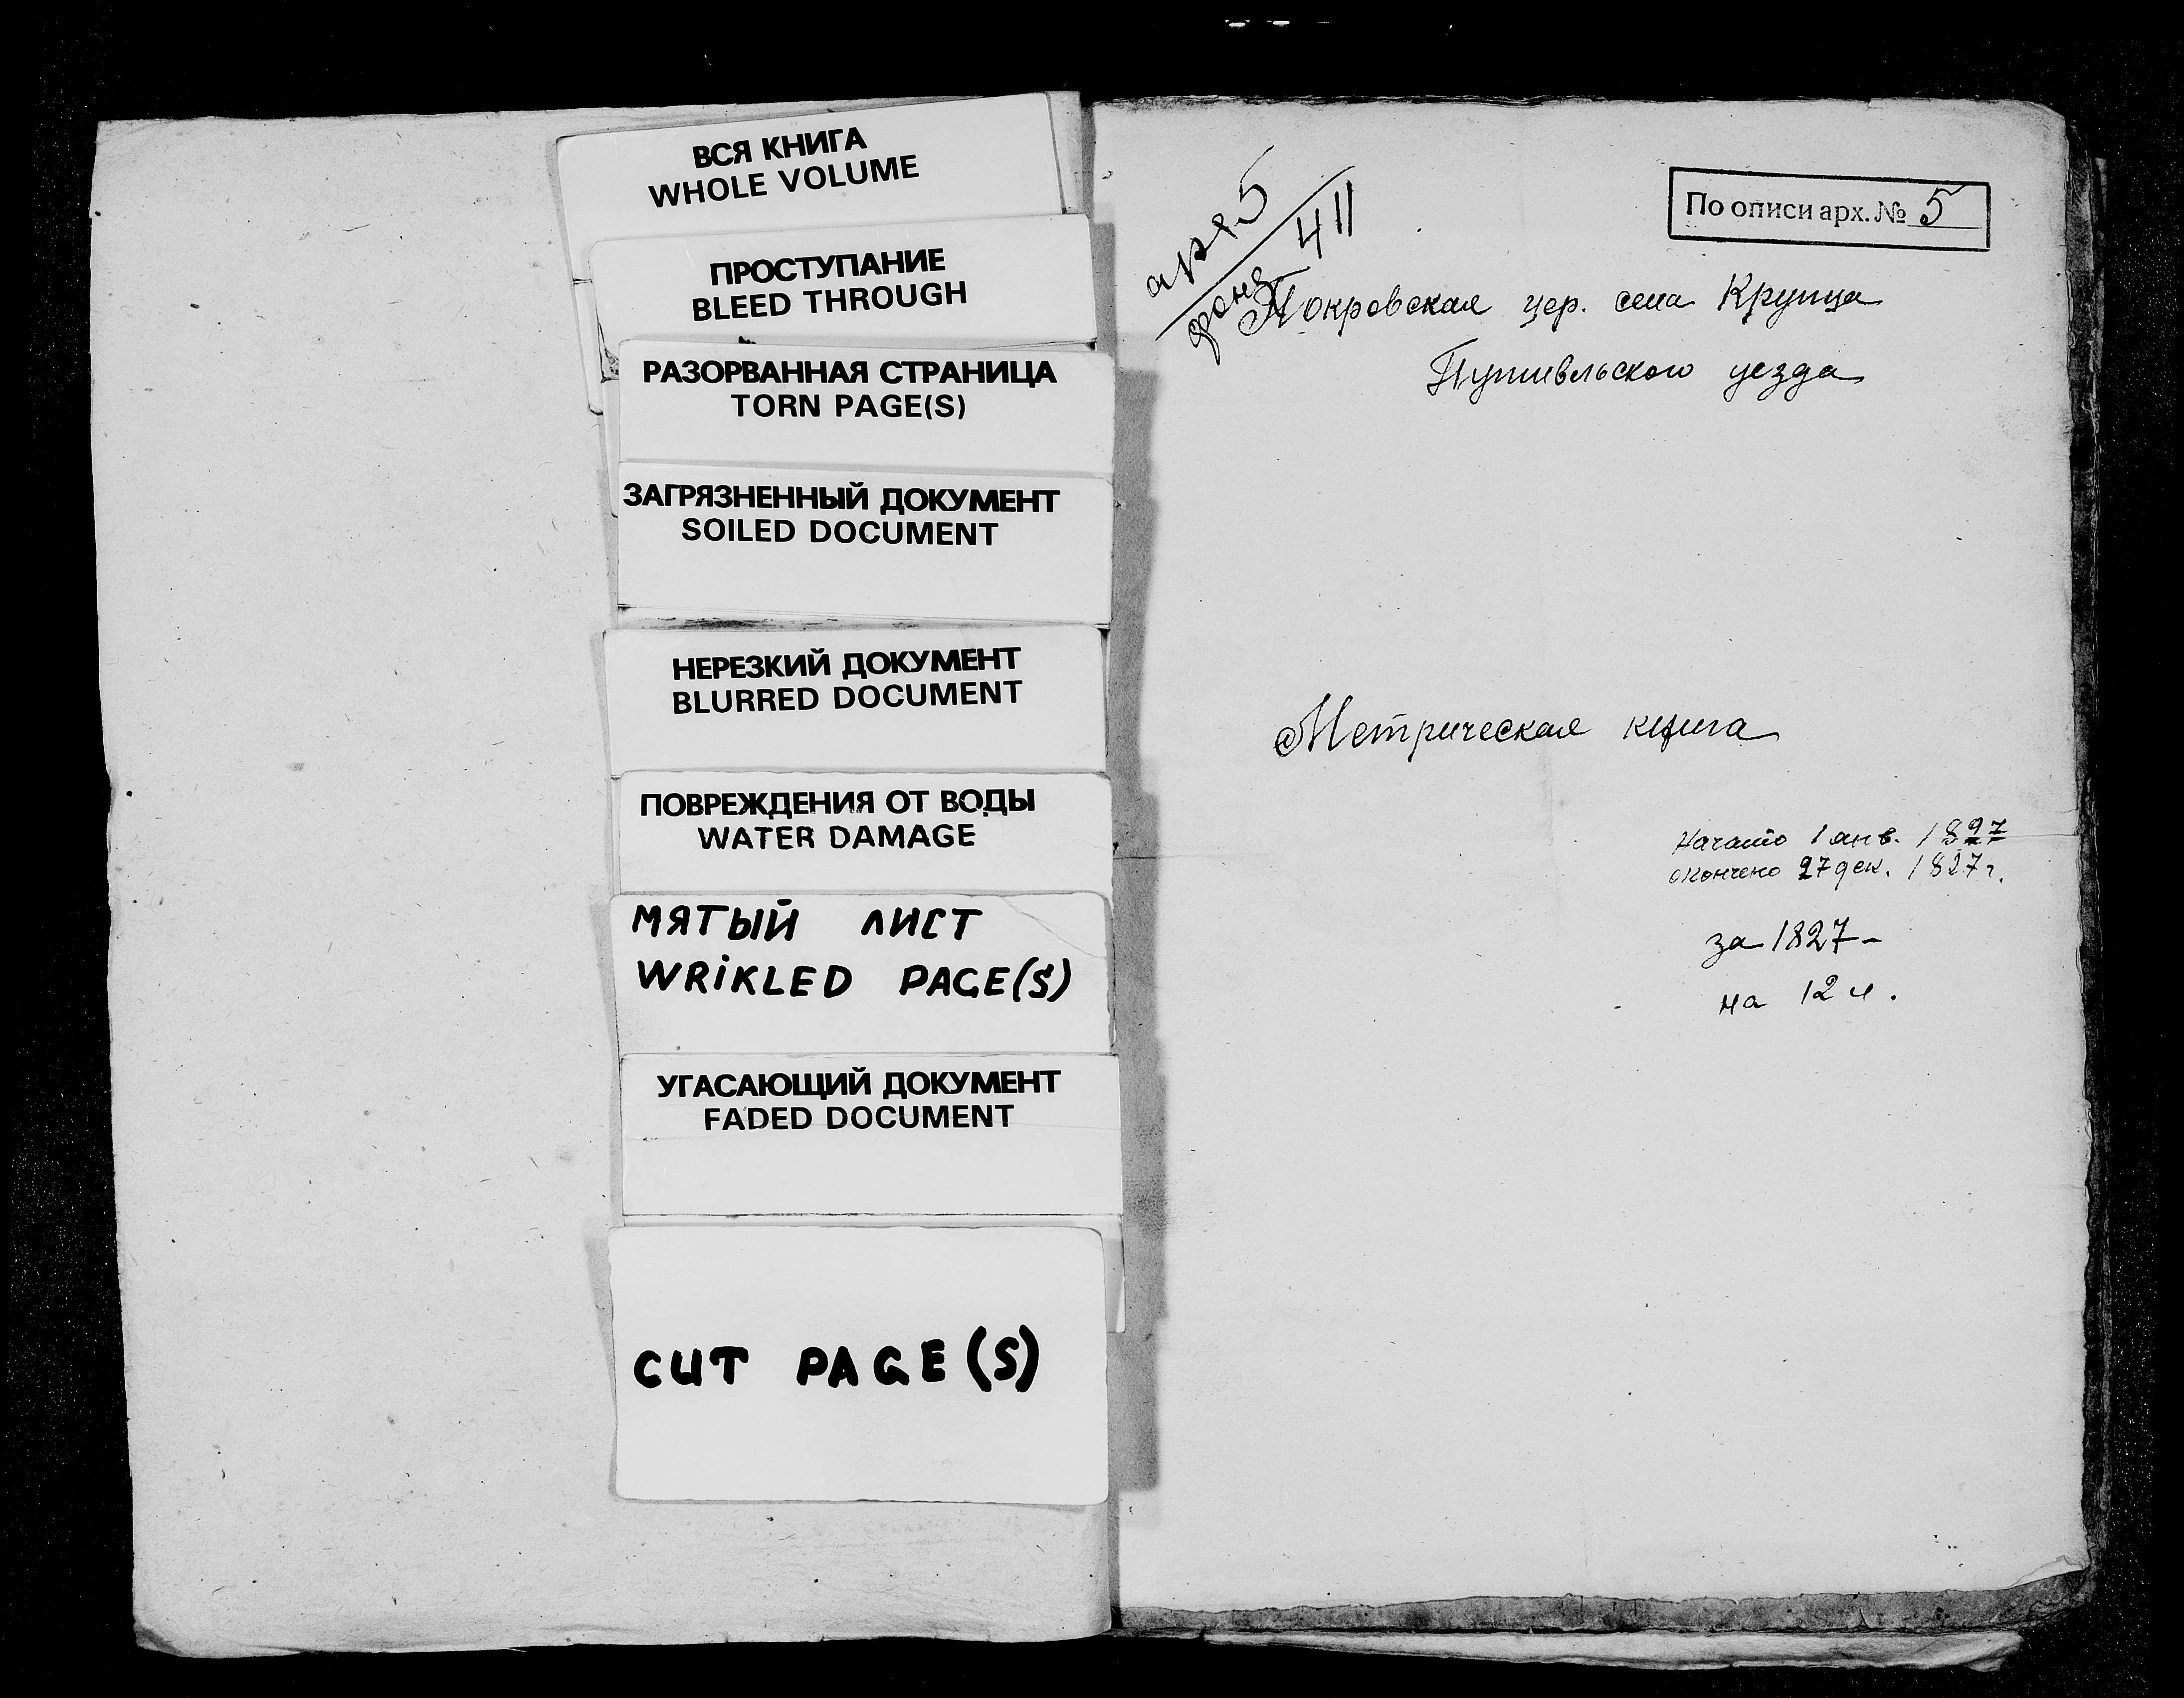 ВСЯ КНИГА
WHOLE VOLUME
ПРОСТУПАНИЕ
BLEED THROUGH
РАЗОРВАННАЯ СТРАНИЦА
TORN PAGE(S)
ЗАГРЯЗНЕННЫЙ ДОКУМЕНТ
SOILED DOCUMENT
НЕРЕЗКИЙ ДОКУМЕНТ
BLURRED DOCUMENT
ПОВРЕЖДЕНИЯ ОТ ВОДЫ
WATER DAMAGE
МЯТЫЙ ЛИСТ
WRIKLED PAGE(S)
УГАСАЮЩИЙ ДОКУМЕНТ
FADED DOCUMENT
CUT PAGE(S)
По описи арх. № 5
арх 5
фонд 411
Покровская цер. села Крупца
Путивльского уезда
Метрическая книга
Начато 1 янв. 1827
окончено 27 дек. 1827 г.
за 1827 -
на 12 л.